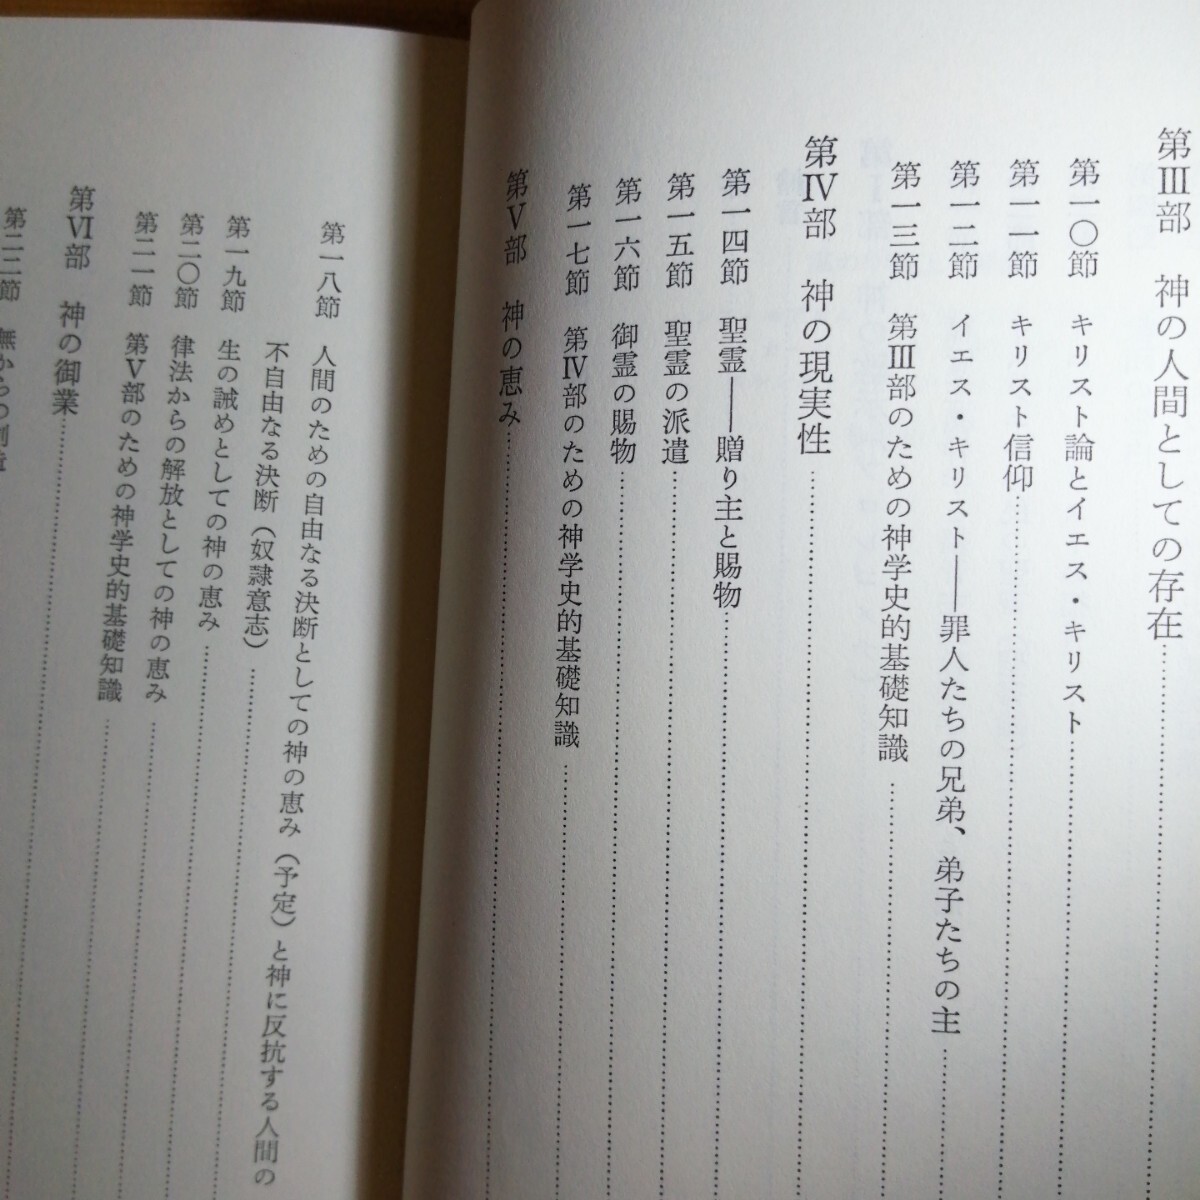 第Ⅲ部　神の人間としての存在
第一〇節　キリスト論とイエス・キリスト
第一一節　キリスト信仰
第一二節　イエス・キリスト——罪人たちの兄弟、弟子たちの主
第一三節　第Ⅲ部のための神学史的基礎知識
第Ⅳ部　神の現実性
第一四節　聖霊——贈り主と賜物
第一五節　聖霊の派遣
第一六節　御霊の賜物
第一七節　第Ⅳ部のための神学史的基礎知識
第Ⅴ部　神の恵み
第一八節　人間のための自由なる決断としての神の恵み（予定）と神に反抗する人間の
不自由なる決断（奴隷意志）
第一九節　生の誡めとしての神の恵み
第二〇節　律法からの解放としての神の恵み
第二一節　第Ⅴ部のための神学史的基礎知識
第Ⅵ部　神の御業
第二二節　無からの創造